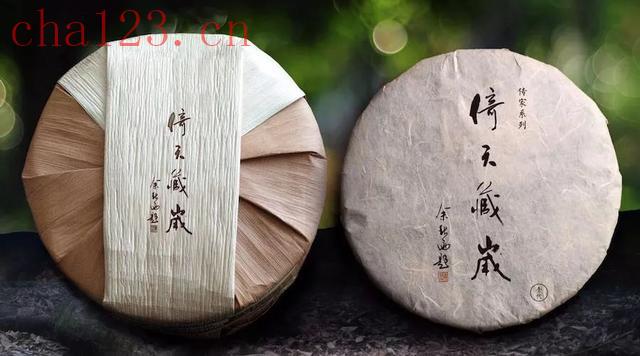 cha123.cn
倚天藏嵗
余秋雨题
传家系列
倚天藏嵗
余秋雨题